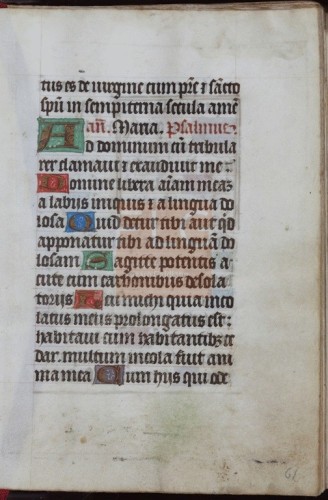 tus es de uirgine cum pr̄e ⁊ sancto
sp̄u in sempiterna secula amē
an̄. Maria. Psalmus
Ad dominum cū tribula
rer clamaui ⁊ exaudiuit me:
Domine libera aīam meaꝫ
a labijs iniquis ⁊ a lingua do
losa Quid detur tibi aut qd̄
apponatur tibi ad linguā do
losam Sagitte potentis a
cute cum carbonibus desola
torijs Heu michi quia inco
latus meus prolongatus est:
habitaui cum habitantibꝫ ce
dar. multum incola fuit ani
ma mea Cum hijs qui ode
61